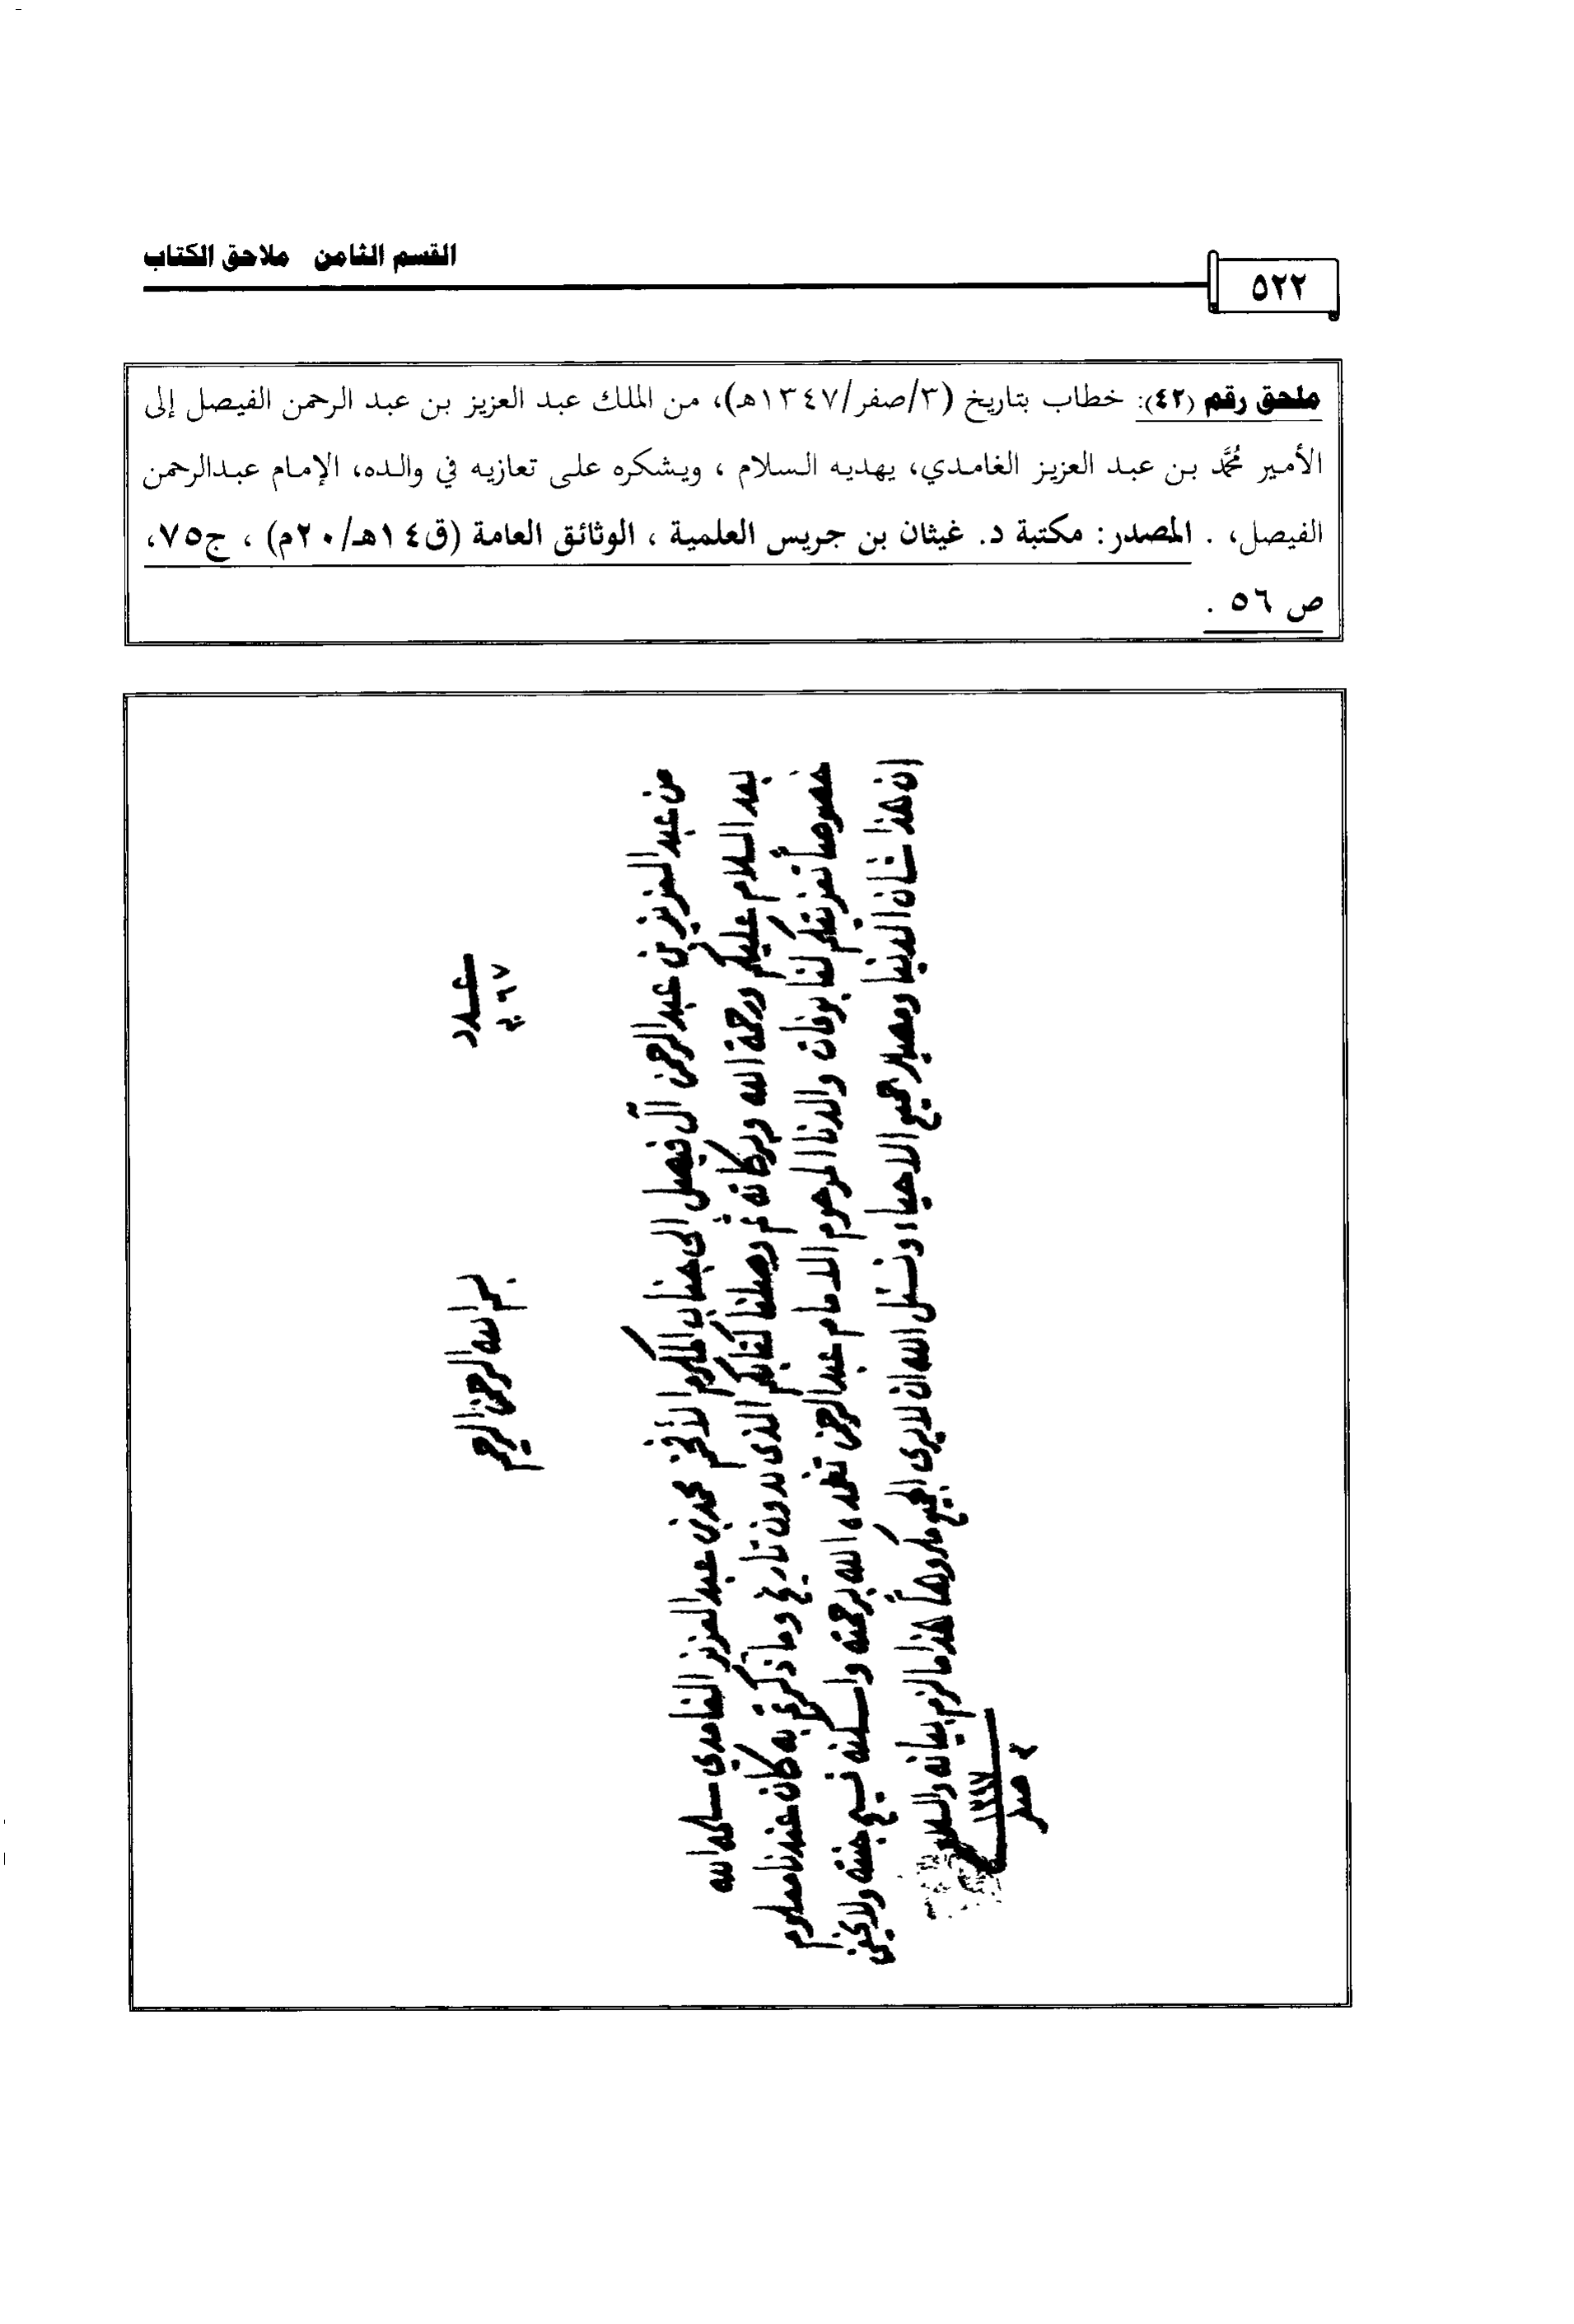 القسم الثامن ملاحق الكتاب
٥٢٢
ملحق رقم (٤٢): خطاب بتاريخ (٣/صفر/١٣٤٧هـ)، من الملك عبد العزيز بن عبد الرحمن الفيصل إلى
الأمير مُحَمَّد بن عبد العزيز الغامدي، يهديه السلام ، ويشكره على تعازيه في والده، الإمام عبدالرحمن
الفيصل، . المصدر: مكتبة د. غيثان بن جريس العلمية ، الوثائق العامة (ق١٤هـ/٢٠م) ، ج٧٥،
ص ٥٦ .
عدد
بسم الله الرحمن الرحيم
من عبد العزيز بن عبد الرحمن آل فيصل الى جناب المكرم الأفخم محمد بن عبد العزيز الغامدي سلمه الله
بعد السلام عليكم ورحمة الله وبركاته ثم وصلنا كتابكم الذى بدون تاريخ وما ذكرتم به كان عندنا معلوم
خصوصاً تعزيتكم لنا بوفات والدنا المرحوم الامام عبد الرحمن تغمده الله برحمته واسكنه فسيح جنته ولا يخفى
ان هذا شان الدنيا ومصير جميع الاحياء ونسئل الله ان لا يرى الجميع مكروهاً هذا ما لزم بيانه والسلام
٣ صفر ١٣٤٧